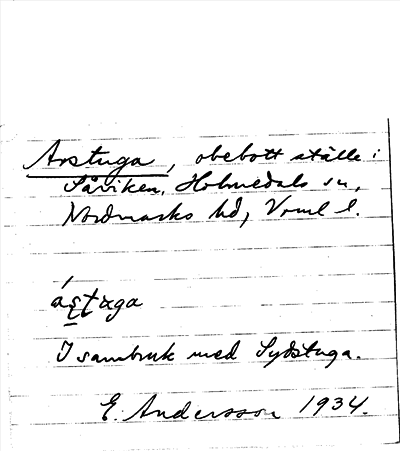 Arstuga, obebott ställe i
Såviken, Holmedals sn,
Nordmarks hd, Vrml l.
ástuga
I sambruk med Sydstuga.
E. Andersson 1934.